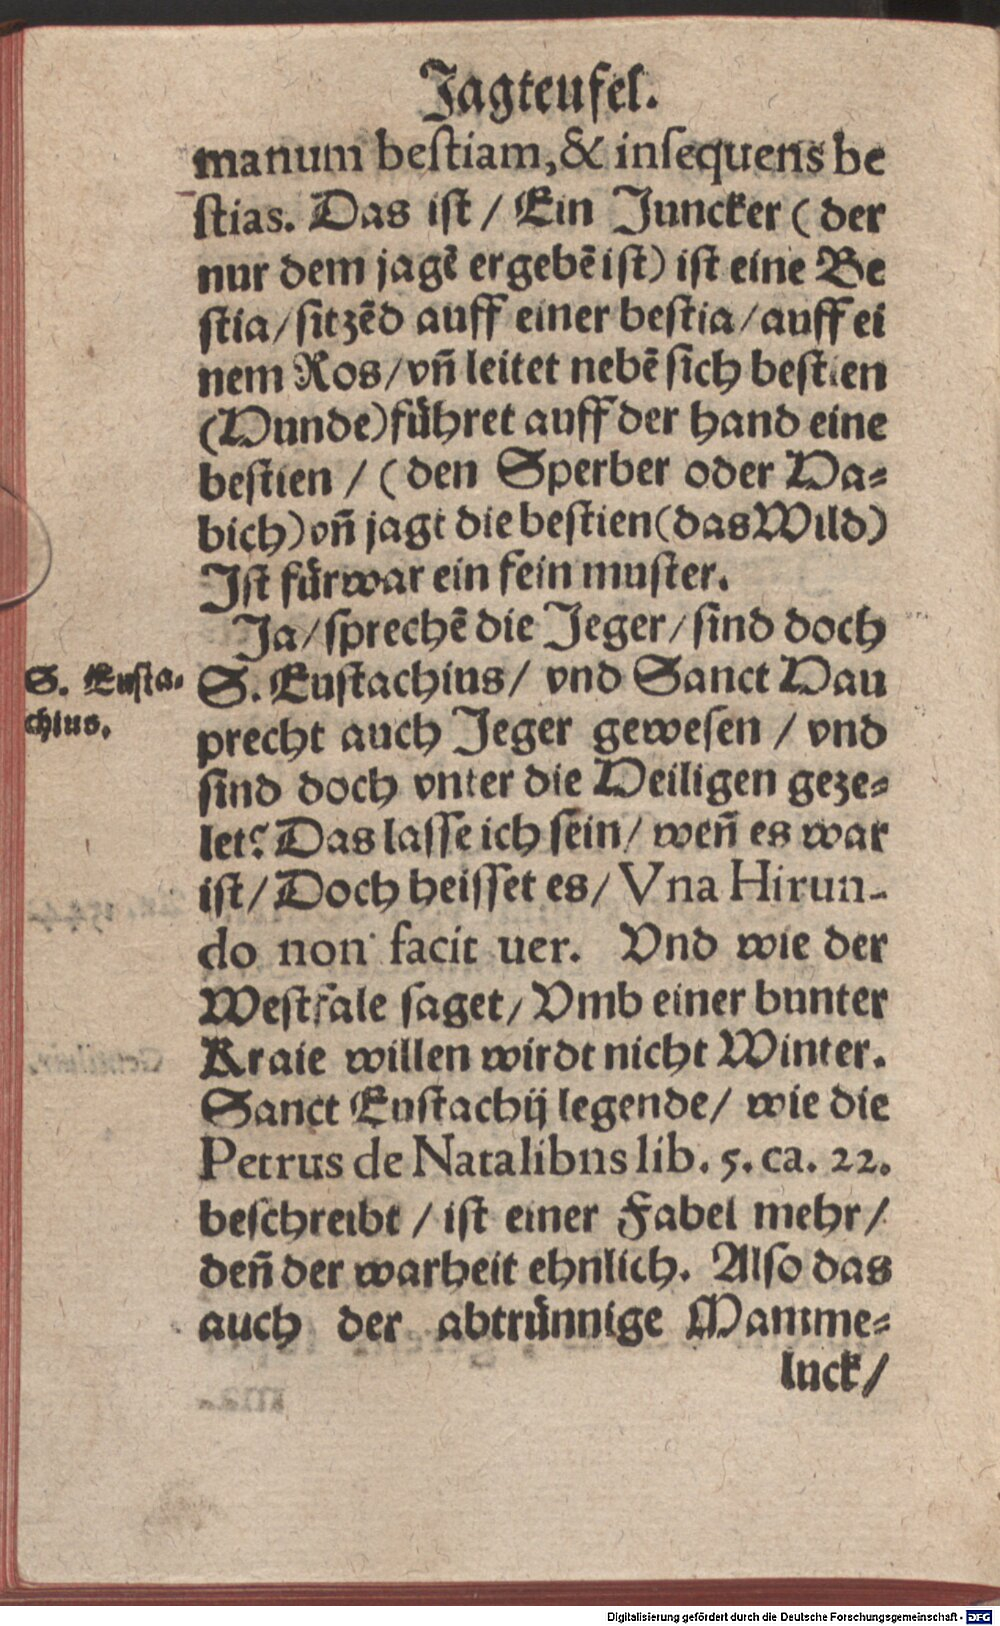 Jagteufel.
manum beſtiam, & inſequens be
ſtias. Das iſt / Ein Juncker ( der
nur dem jagē ergebē iſt) iſt eine Be
ſtia/ſitzēd auff einer beſtia/auff ei
nem Ros/vñ leitet nebē ſich beſtien
(Hunde)führet auff der hand eine
beſtien / (den Sperber oder Ha=
bich)vñ jagt die beſtien(das Wild)
Iſt fürwar ein fein muſter.
Ja/ſprechē die Jeger/ſind doch
S. Euſta=
chius.
S. Euſtachius/ vnd Sanct Hau
precht auch Jeger geweſen / vnd
ſind doch vnter die Heiligen geze=
let? Das laſſe ich ſein/ weñ es war
iſt/ Doch heiſſet es/ Vna Hirun-
do non facit uer. Vnd wie der
Weſtfale ſaget/ Vmb einer bunter
Kraie willen wirdt nicht Winter.
Sanct Euſtachij legende/ wie die
Petrus de Natalibns lib. 5. ca. 22.
beſchreibt / iſt einer Fabel mehr/
deñ der warheit ehnlich. Alſo das
auch der abtrünnige Mamme=
luck/
Digitalisierung gefördert durch die Deutsche Forschungsgemeinschaft - DFG